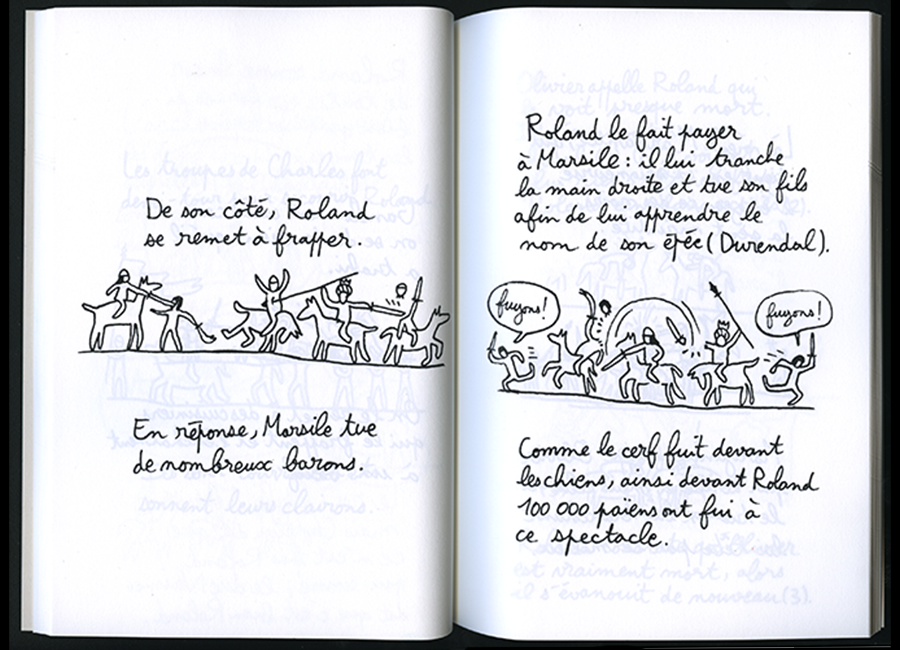 De son côté, Roland
se remet à frapper.
En réponse, Marsile tue
de nombreux barons.
Roland le fait payer
à Marsile : il lui tranche
la main droite et tue son fils
afin de lui apprendre le
nom de son épée (Durendal).
fuyons !
fuyons !
Comme le cerf fuit devant
les chiens, ainsi devant Roland
100 000 païens ont fui à
ce spectacle.